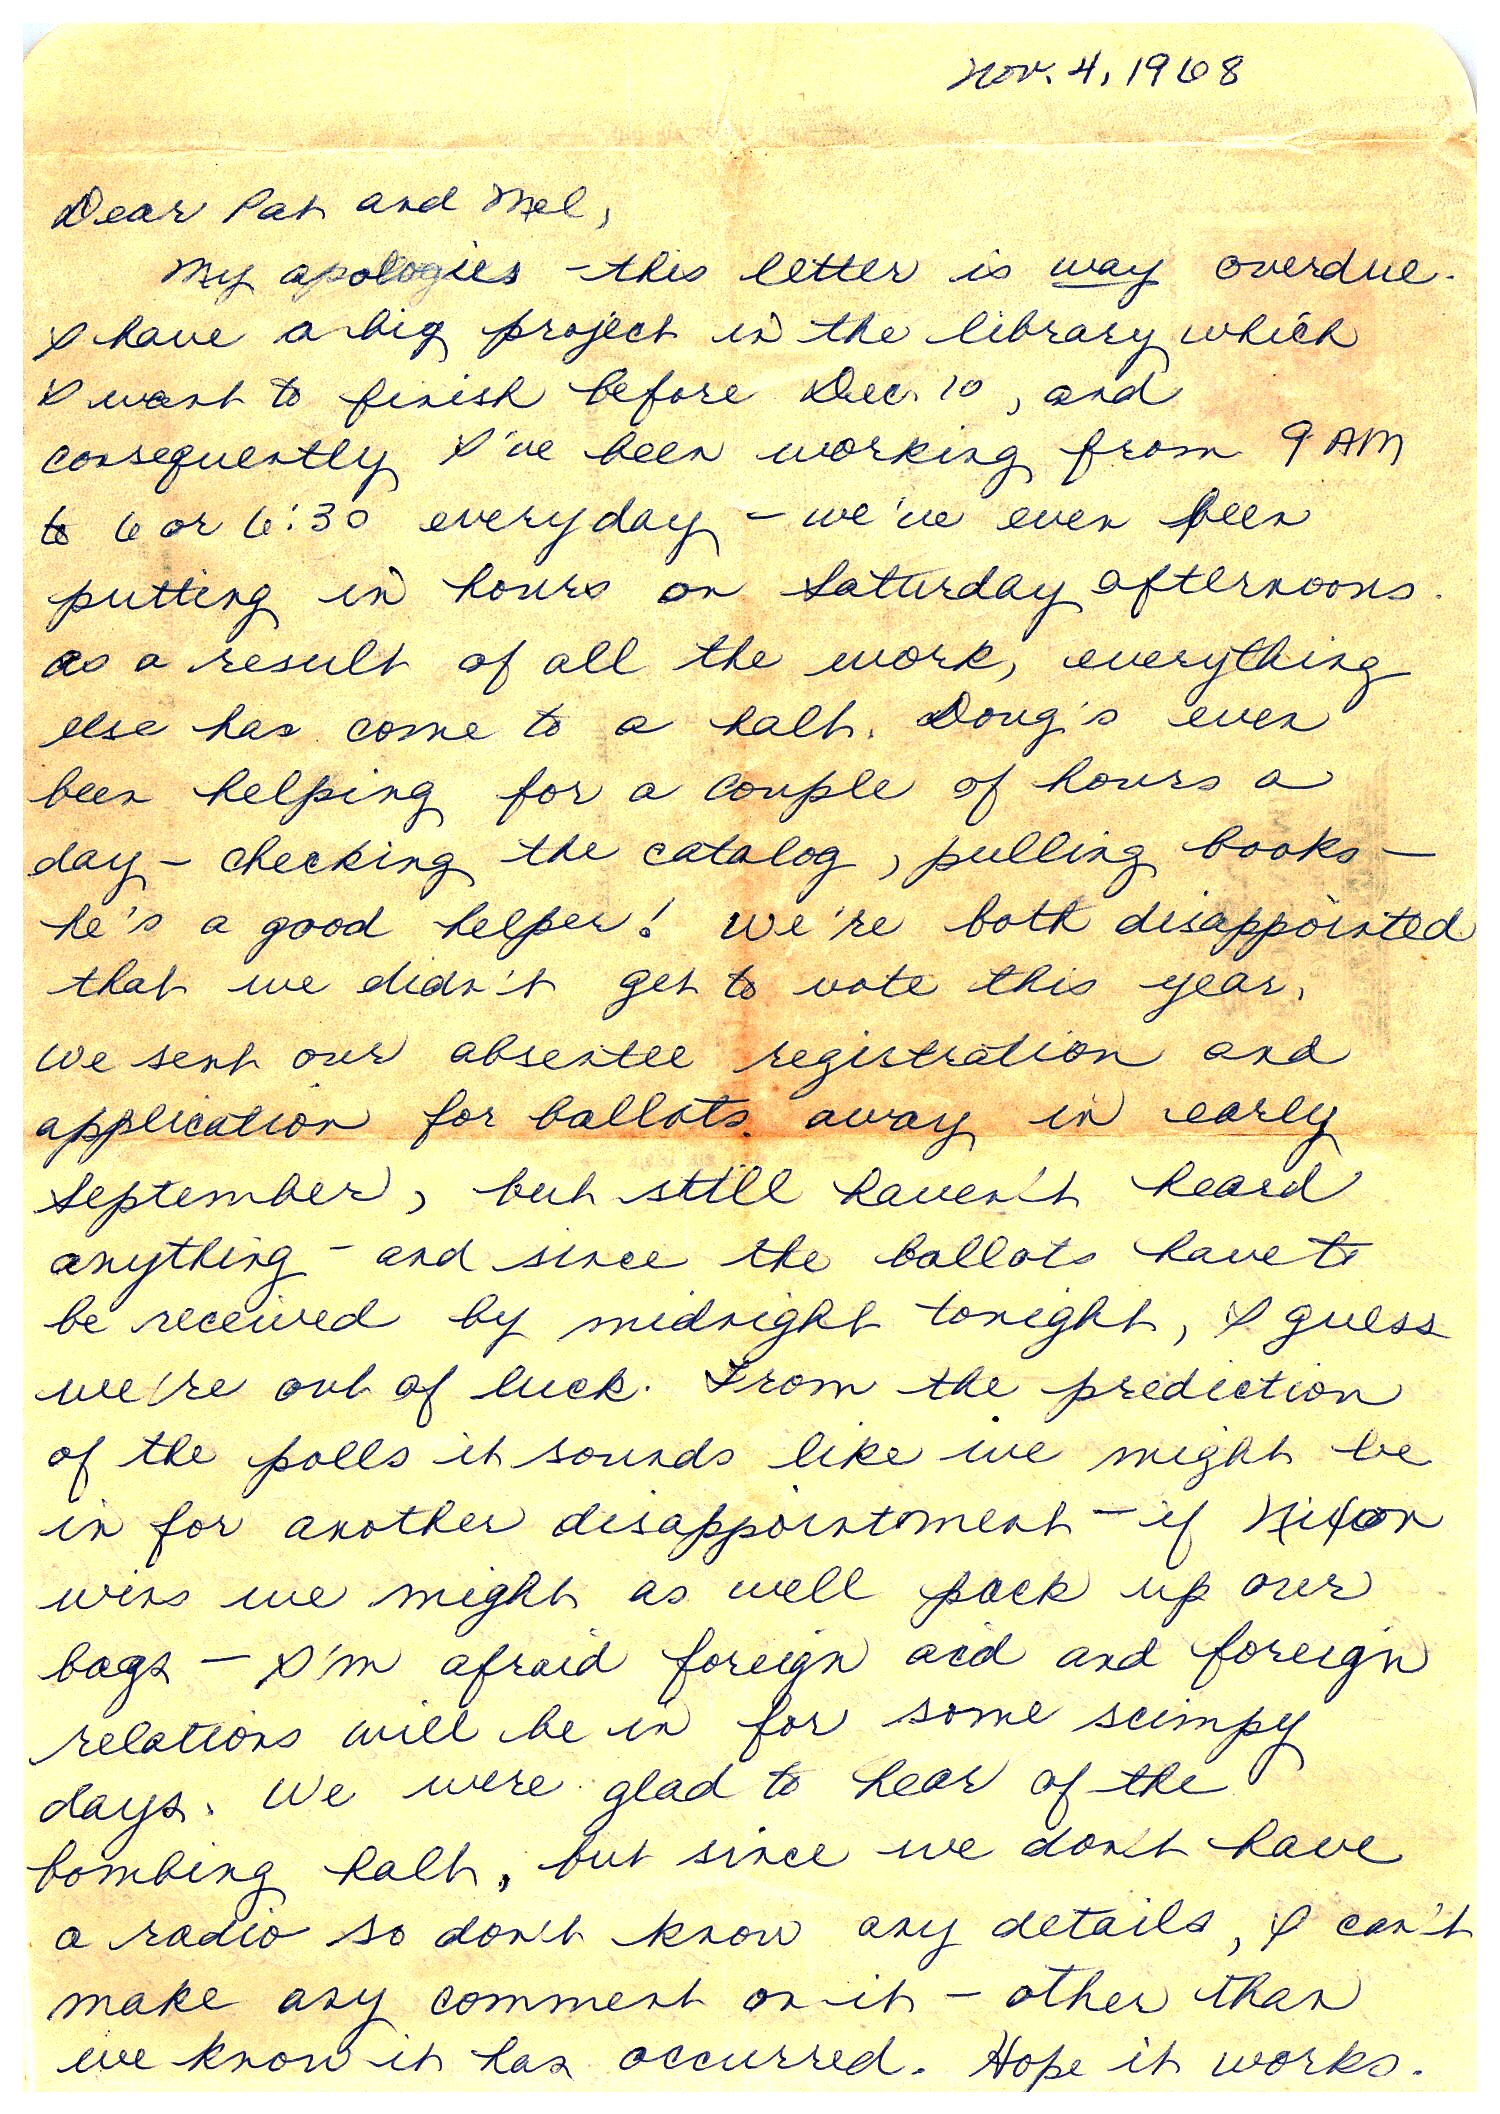 Nov. 4, 1968
Dear Pat and Mel,
My apologies - this letter is way overdue.
I have a big project in the library which
I want to finish before Dec. 10, and
consequently I've been working from 9 AM
to 6 or 6:30 everyday - we've even been
putting in hours on Saturday afternoons.
As a result of all the work, everything
else has come to a halt. Doug's even
been helping for a couple of hours a
day - checking the catalog, pulling books -
he's a good helper! We're both disappointed
that we didn't get to vote this year.
We sent our absentee registration and
application for ballots away in early
September, but still haven't heard
anything - and since the ballots have to
be received by midnight tonight, I guess
we're out of luck. From the prediction
of the polls it sounds like we might be
in for another disappointment - if Nixon
wins we might as well pack up our
bags - I'm afraid foreign aid and foreign
relations will be in for some scimpy
days. We were glad to hear of the
bombing halt, but since we don't have
a radio so don't know any details, I can't
make any comment on it - other than
we know it has occurred. Hope it works.